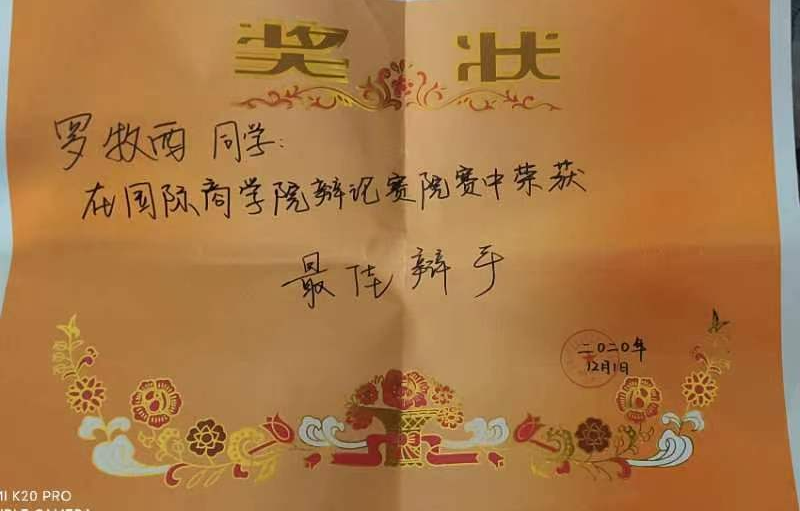 奖状
罗牧西 同学:
在国际商学院辩论赛院赛中荣获
最佳辩手
二〇二〇年
12月1日
MI K20 PRO